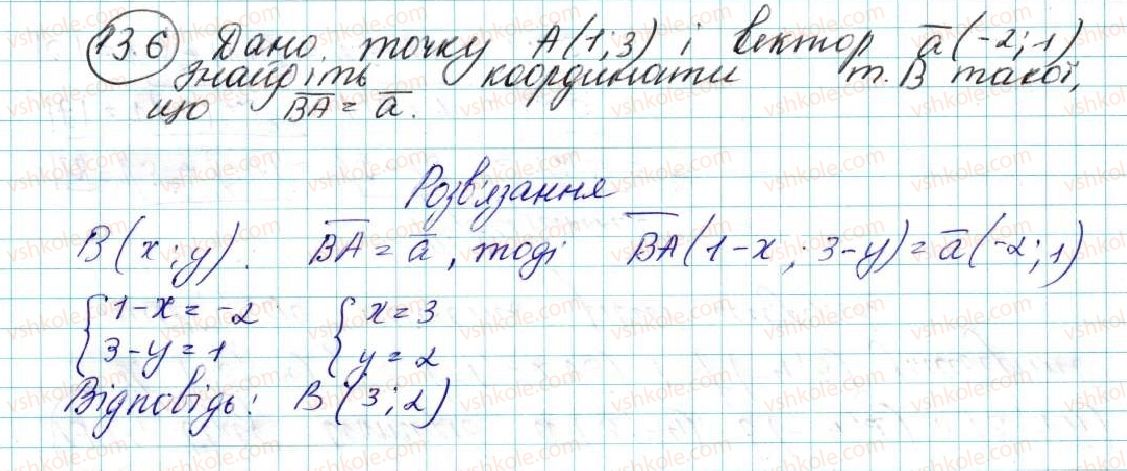 13.6 Дано точку A(1;3) і вектор a̅(-2;1)
Знайдіть координати т. B такої,
що B̅A̅ = a̅.
Розв'язання
B(x;y). B̅A̅ = a̅, тоді B̅A̅(1-x; 3-y) = a̅(-2;1)
{1-x = -2 {x = 3
{3-y = 1 {y = 2
Відповідь: B(3;2)